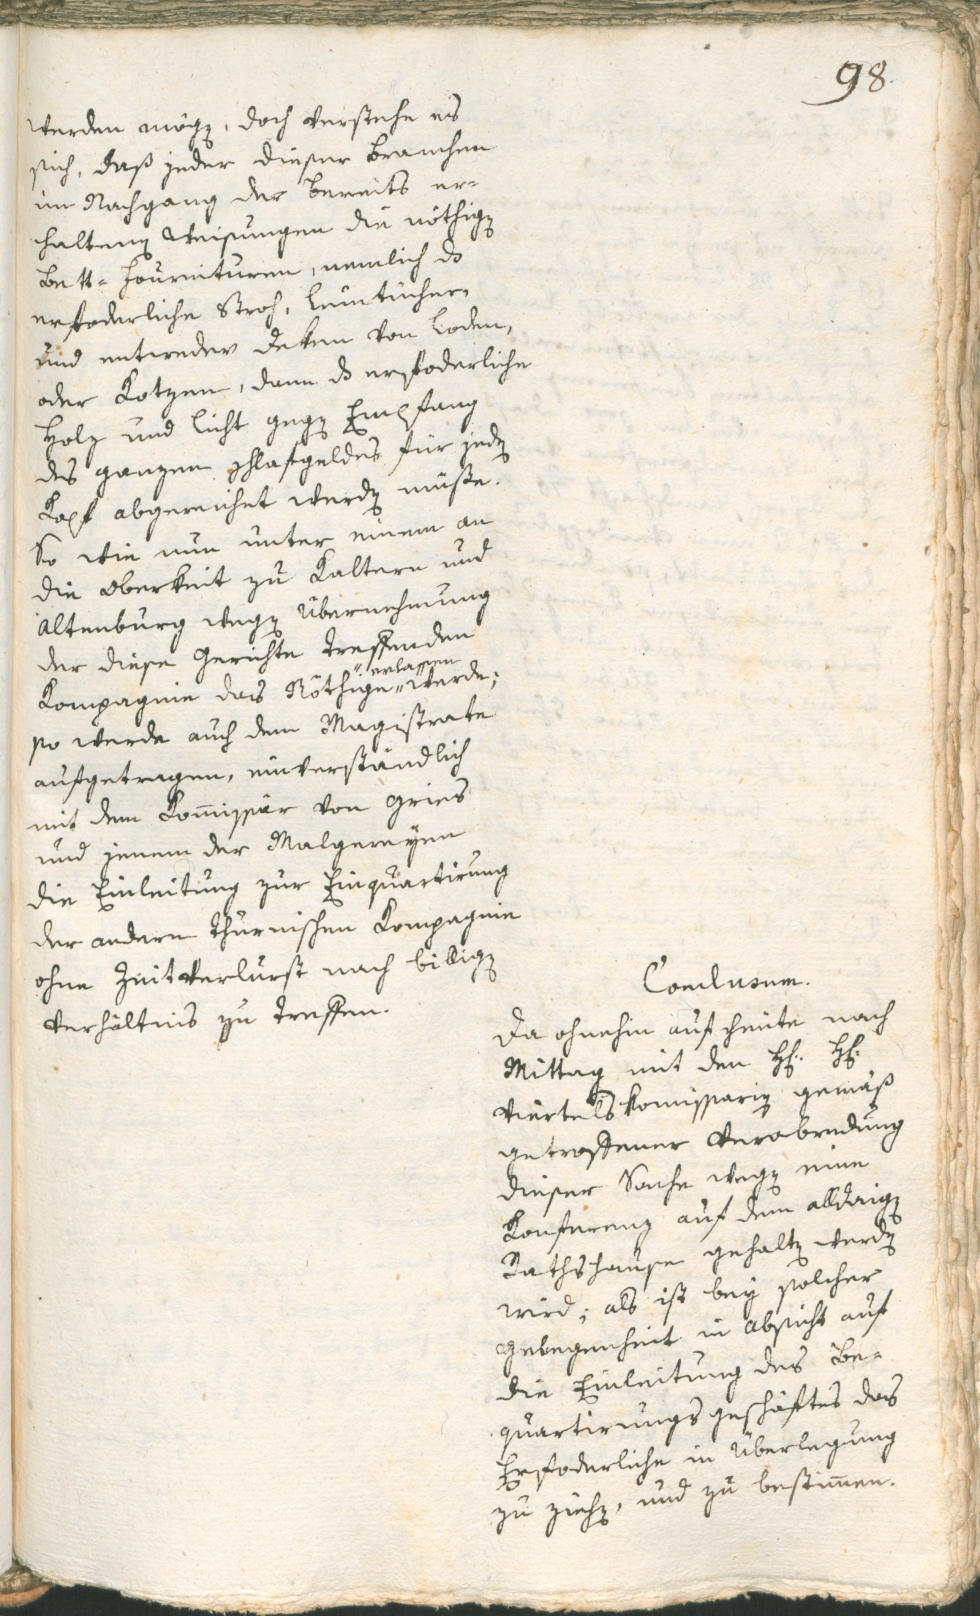 98.
werden mög[en], doch verstehe es
sich, daß jeder dieser Branchen
im Nachgang der bereits er-
haltenen Weisungen die nöthig[en]
Bett-Fournituren, nemlich d[as]
erfoderliche Stroh, Leintücher,
und entweder Deken von Loden,
oder Kotzen, dann d[as] erfoderliche
Holz und Licht geg[en] Empfang
des ganzen Schlafgeldes für jed[en]
Kopf abgereichet werd[en] müße.
So wie nun unter einem an
die Oberkeit zu Kaltern und
Altenburg weg[en] Übernehmung
der diese Gerichte treffenden
Kompagnie das Nöthige erlassen werde;
so werde auch dem Magistrate
aufgetragen, einverständlich
mit dem Kom̄issär von Gries
und jenem der Malgereyen
die Einleitung zur Einquartirung
der andern Thurnischen Kompagnie
ohne Zeitverlurst nach billig[en]
Verhältnis zu treffen.
Conclusum.
Da ohnehin auf heute nach
Mittag mit den H[erren] H[erren]
Viertelskom̄issarien gemäß
getroffener Verabredung
dieser Sache weg[en] eine
Konferenz auf dem alldaig[en]
Rathshause gehalt[en] werd[en]
wird; als ist bey solcher
Gelegenheit in Absicht auf
die Einleitung des Be-
quartirungsgeschäftes das
Erfoderliche in Überlegung
zu zieh[en], und zu bestim̄en.